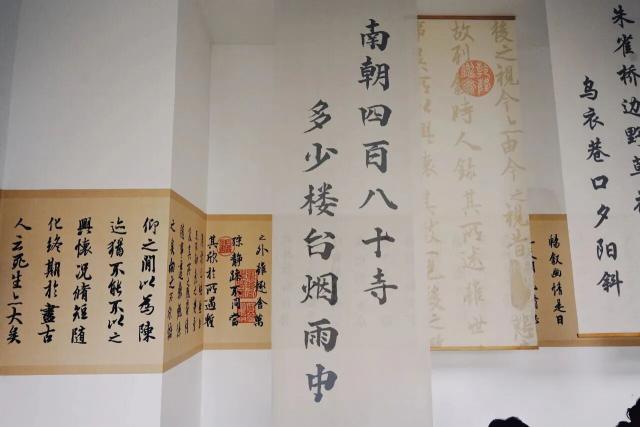 朱雀桥边野草花
乌衣巷口夕阳斜
暢叙幽情是日
後之視今亦由今之視昔悲
故列叙時人錄其所述雖世
南朝四百八十寺
多少楼台烟雨中
之外雖趣舍萬
殊靜躁不同當
其欣於所遇暫
仰之閒以為陳
迹猶不能不以之
興懷況脩短隨
化終期於盡古
人云死生亦大矣